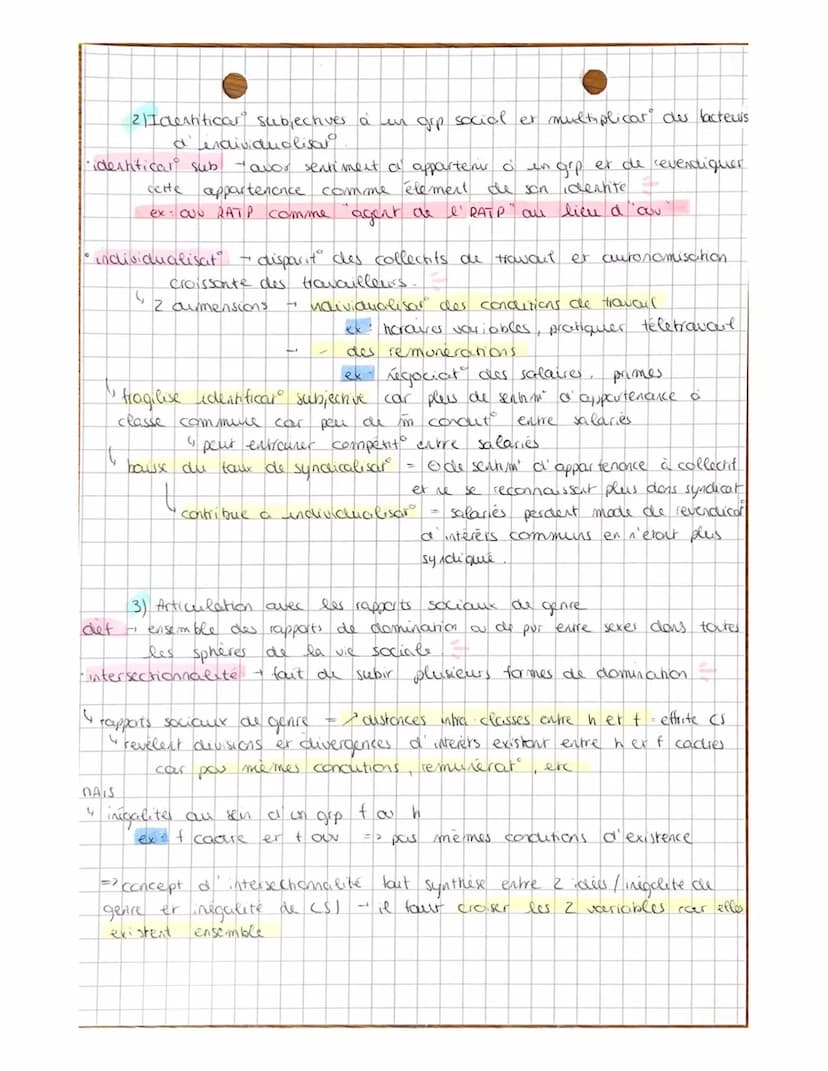 2) Identificat° subjectives à un grp social et multiplicat° des facteurs
d'individualisat°
• identificat° sub → avoir sentiment d'appartenir à un grp et de revendiquer
cette appartenance comme élément de son identité
ex : ouv RATP comme "agent de l'RATP" au lieu d'"ouv"
• individualisat° → disparit° des collectifs de travail et autonomisation
croissante des travailleurs.
↳ 2 dimensions → individualisat° des conditions de travail
ex : horaires variables, pratiquer télétravail
→ - des rémunérations
ex : négociat° des salaires, primes
↳ fragilise identificat° subjective car plus de sentim' d'appartenance à
classe commune car peu de m̄ condit° entre salariés
↳ peut entraîner compétit° entre salariés
↳ baisse du taux de syndicalisat° = ⊖ de sentim' d'appartenance à collectif
et ne se reconnaissent plus dans syndicat
↳ contribue à individualisat° = salariés perdent mode de revendicat°
d'intérêts communs en n'étant plus
syndiqué.
3) Articulation avec les rapports sociaux de genre
déf → ensemble des rapports de domination ou de pvr entre sexes dans toutes
les sphères de la vie sociale
• intersectionnalité → fait de subir plusieurs formes de domination
↳ rapports sociaux de genre = ↗ distances intra-classes entre h et f = effrite CS
↳ révèlent divisions et divergences d'intérêts existant entre h et f cadres
car pas mêmes conditions, rémunérat°, etc
MAIS
↳ inégalités au sein d'un grp f ou h
ex : f cadre et f ouv => pas mêmes conditions d'existence
=> concept d'intersectionnalité fait synthèse entre 2 idées (inégalité de
genre et inégalité de CS) → il faut croiser les 2 variables car elles
existent ensemble